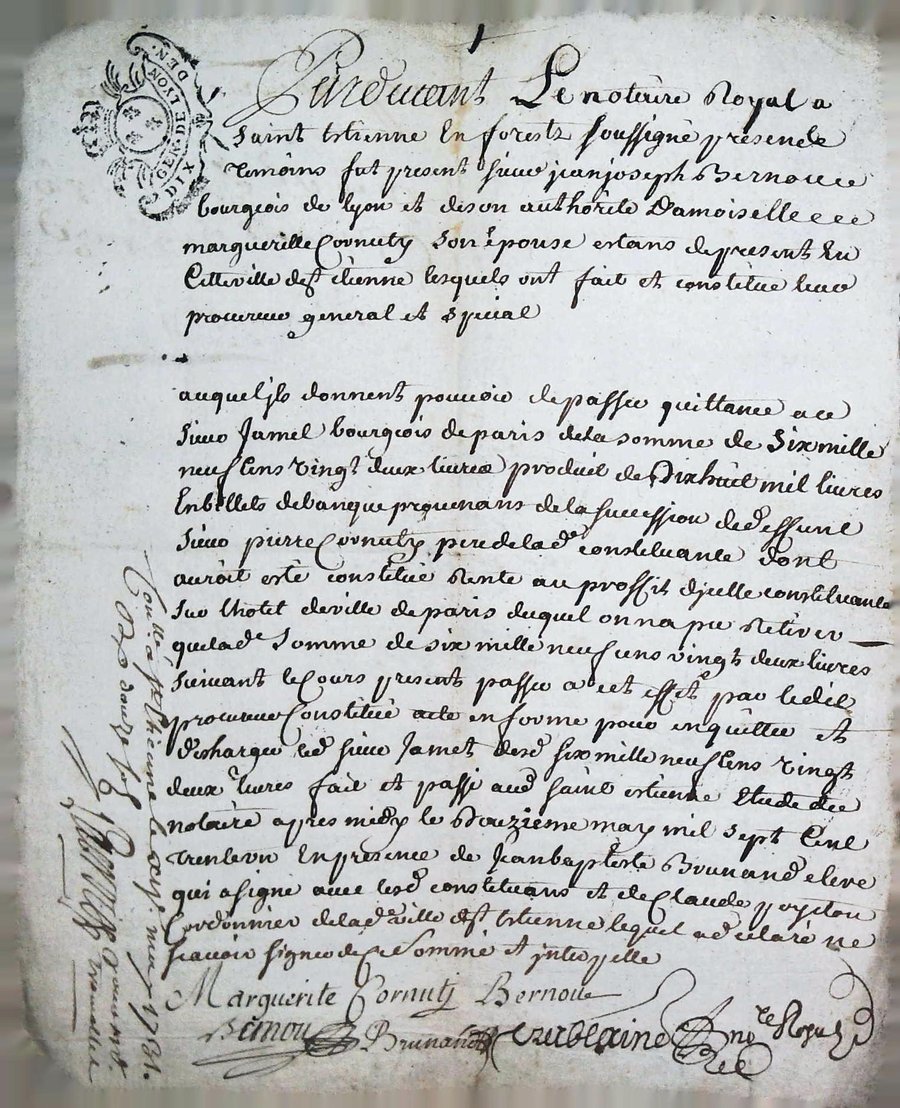 GEN. DE LYON
DIX DEN.
Pardevant Le notaire Royal a
Saint etienne En forestz soussigné presende
Temoins fut present sieur jean joseph Bernou e e
bourgeois de lyon et deson authorite Damoiselle e e e
margueritte Cornuty son epouse estans de present En
Cette ville de st etienne lesquels ont fait et constitue leur
procureur general et special
auquel jls donnent pouvoir de passer quittance a ce
sieur Jamet bourgeois de paris de la somme de Six mille
neuf Cens vingt deux livres produit de Dixhuit mil livres
En billets de banque provenans de la succession de deffunt
sieur pierre Cornuty pere de lade constituante dont
auroit esté constitué Rente au proffit djcelle constituante
sur lhotel de ville de paris duquel on na pu Retirer
que lade somme de six mille neuf cens vingt deux livres
suivant le Cours present passer a cet effet par ledit
procureur Constitué acte en forme pour en quitter et
decharger led sieur Jamet desd six mille neuf Cens vingt
deux livres fait et passé aud saint etienne Etude du
notaire apres midy le Douzieme may mil sept Cent
Trente un En presence de Jean baptiste Brunand clerc
qui a signé avec lesd constituans et de Claude
Cordonnier de lade ville de st etienne lequel a declaré ne
scavoir signer de ce sommé et jnterpellé
Marguerite Cornuty Bernou
Bernou Brunand nore Royal
Conllé a st etienne le may 1731.
Rd douze s